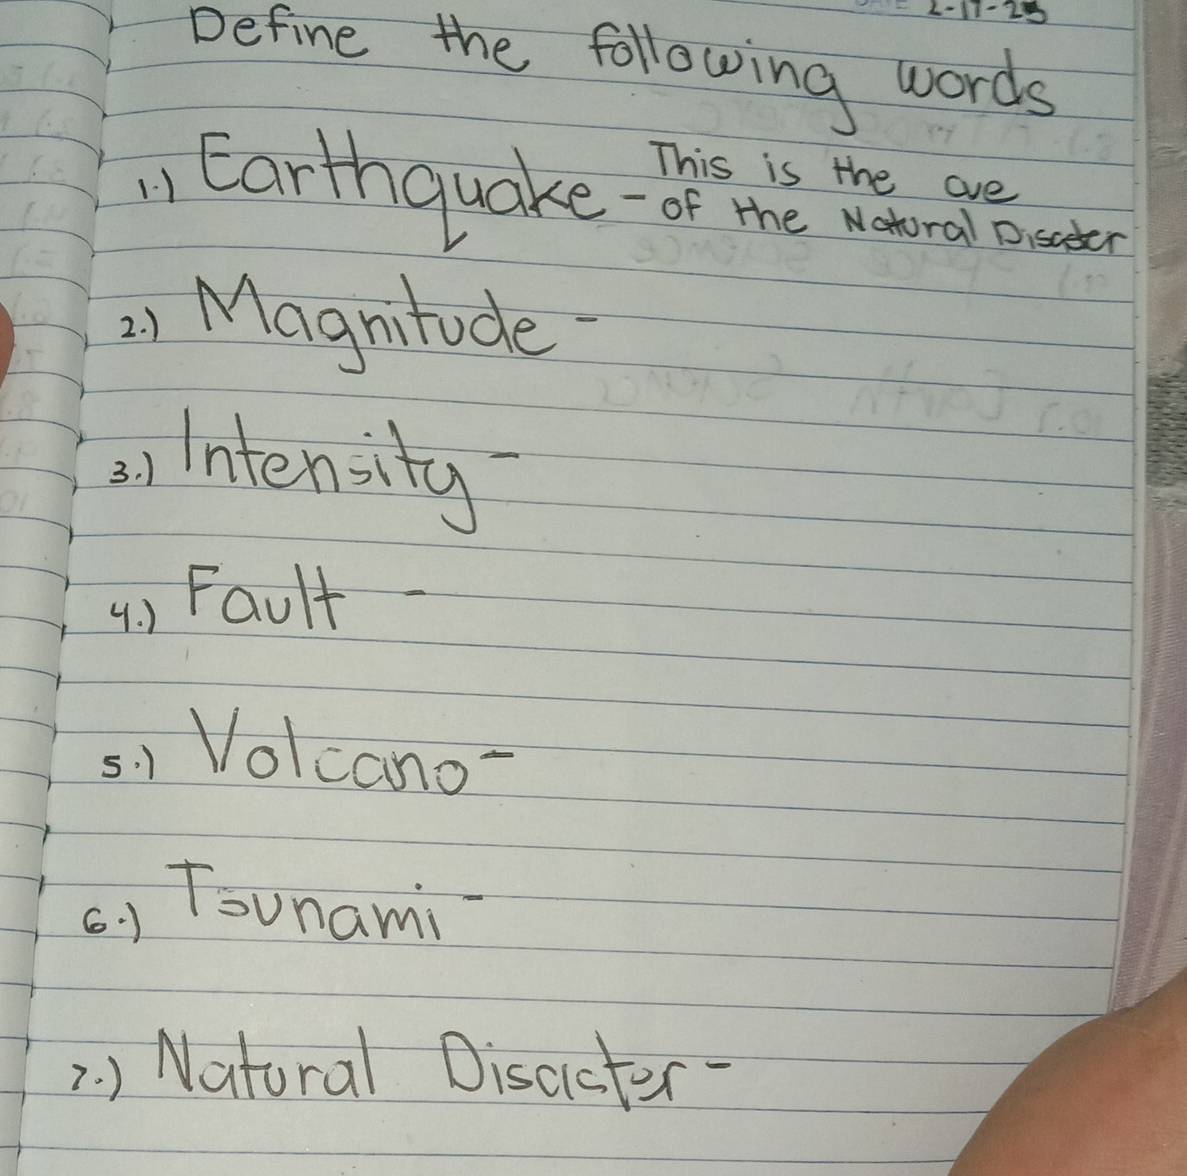 2-17-25
Define the following words
1.) Earthquake - This is the ove
of the Natural Disaster
2.) Magnitude -
3.) Intensity -
4.) Fault -
5.) Volcano -
6.) Tsunami -
7.) Natural Disaster -